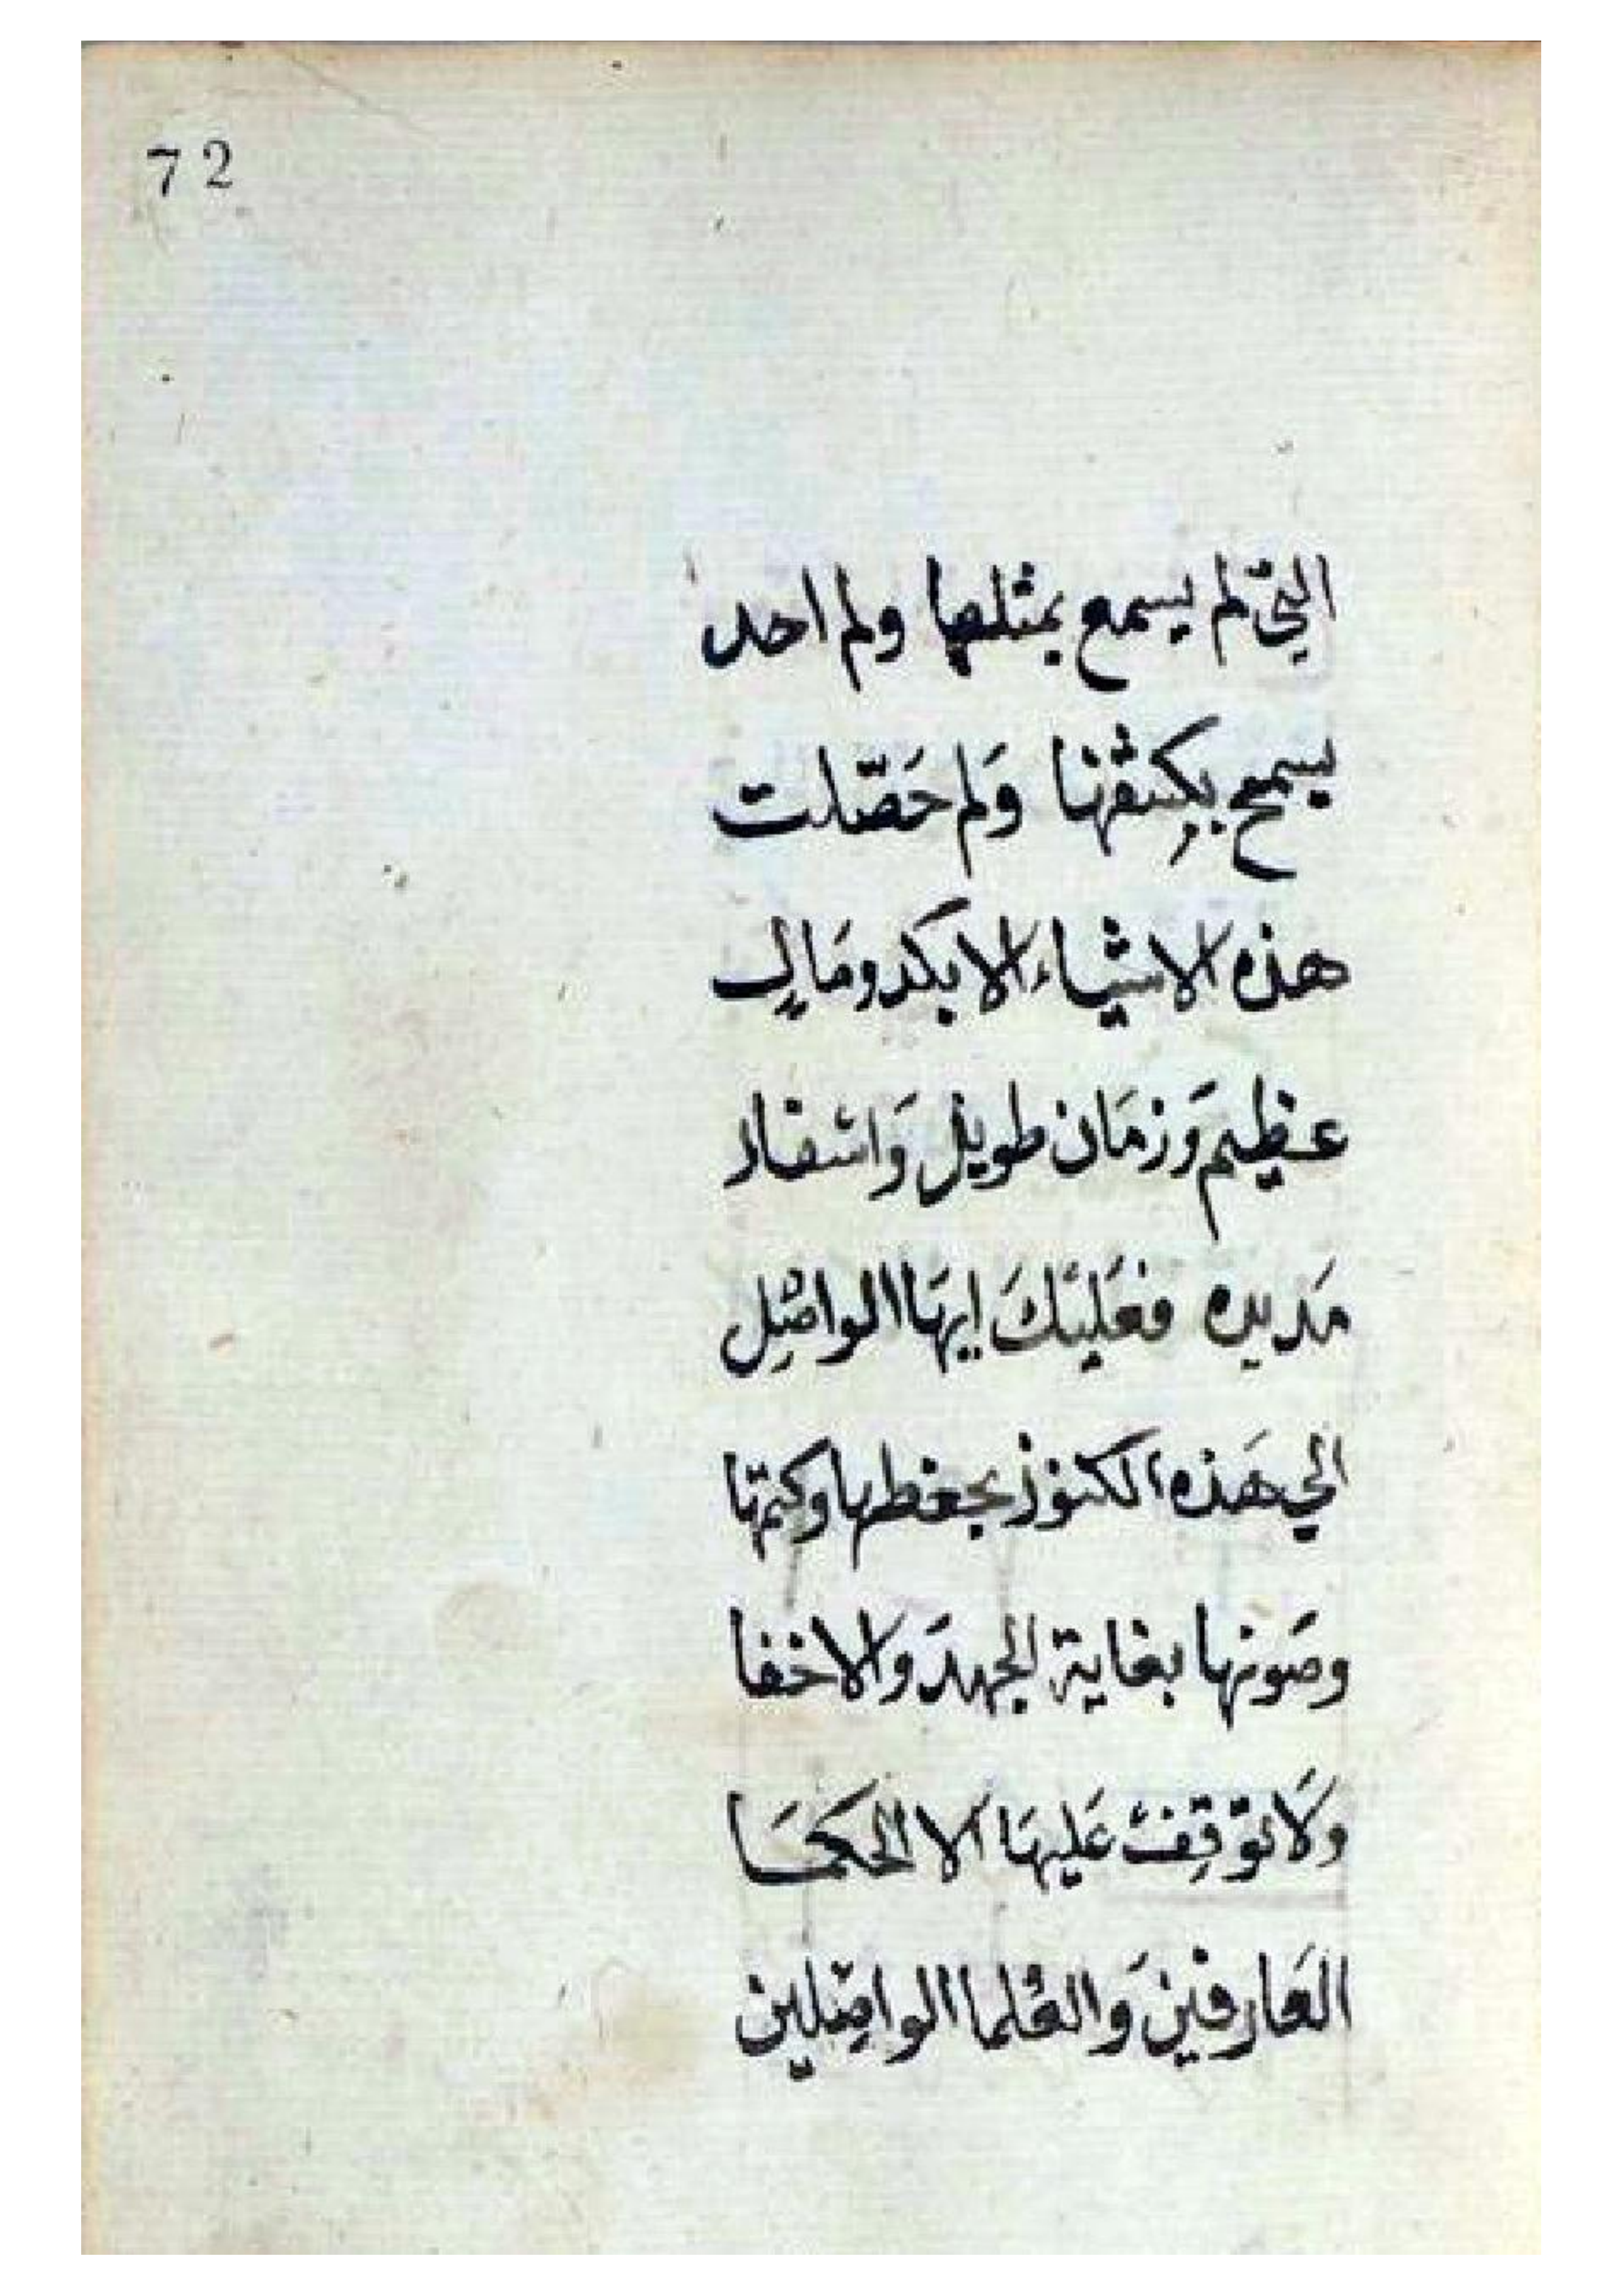 72
التِي لم يسمع بمثلها ولم احد
يسمح بكشفها وَلم حَصّلت
هذه الاشياء الا بكد ومَال
عظيم وَزمَان طويل وَاسفار
مَديده فعَليكَ ايهَا الواصِل
الي هَذه الكنوز بحفظها وكتمها
وصَونها بغاية الجهدَ والاخفا
وَلَا توَقِف عَليهَا الا الحكمَا
العَارفين وَالعُلما الواصِلين